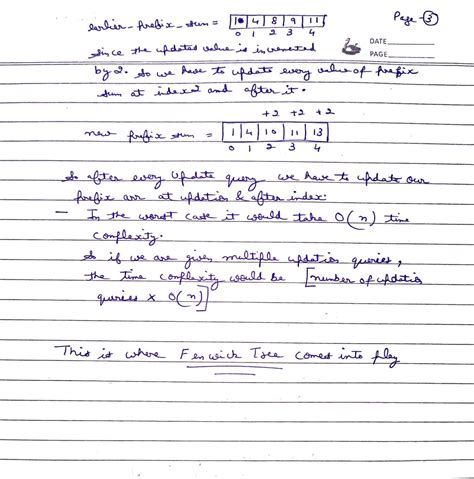 Page - 3
earlier - prefix - sum = | 1 | 4 | 8 | 9 | 11 |
0 1 2 3 4
DATE
PAGE
Since the updated value is increased
by 2. So we have to update every value of prefix
sum at index 2 and after it.
+2 +2 +2
new prefix sum = | 1 | 4 | 10 | 11 | 13 |
0 1 2 3 4
So after every Update query we have to update our
prefix arr at updation & after index:
— In the worst case it would take O(n) time
complexity.
So if we are given multiple updation queries,
the time complexity would be [number of updation
queries × O(n)]
This is where Fenwick Tree comes into play